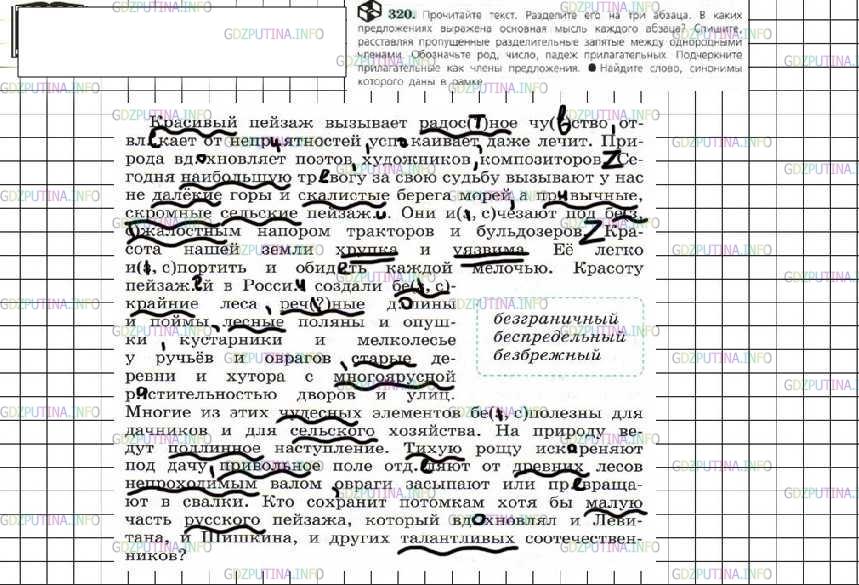 320. Прочитайте текст. Разделите его на три абзаца. В каких
предложениях выражена основная мысль каждого абзаца? Спишите,
расставляя пропущенные разделительные запятые между однородными
членами. Обозначьте род, число, падеж прилагательных. Подчеркните
прилагательные как члены предложения. ● Найдите слово, синонимы
которого даны в рамке.
Красивый пейзаж вызывает радос(т)ное чу(в)ство, от-
влекает от неприятностей, успокаивает, даже лечит. При-
рода вдохновляет поэтов, художников, композиторов. Z Се-
годня наибольшую тревогу за свою судьбу вызывают у нас
не далёкие горы и скалистые берега морей, а привычные,
скромные сельские пейзажи. Они и(з, с)чезают под без-
жалостным напором тракторов и бульдозеров. Z Кра-
сота нашей земли хрупка и уязвима. Её легко
и(з, с)портить и обидеть каждой мелочью. Красоту
пейзажей в России создали бе(з, с)-
крайние леса, реч(?)ные долины
и поймы, лесные поляны и опуш-
ки, кустарники и мелколесье
у ручьёв и оврагов, старые де-
ревни и хутора с многоярусной
растительностью дворов и улиц.
безграничный
беспредельный
безбрежный
Многие из этих чудесных элементов бе(з, с)полезны для
дачников и для сельского хозяйства. На природу ве-
дут поллинное наступление. Тихую рощу искореняют
под дачу, привольное поле отделяют от древних лесов
непроходимым валом, овраги засыпают или превраща-
ют в свалки. Кто сохранит потомкам хотя бы малую
часть русского пейзажа, который вдохновлял и Леви-
тана, и Шишкина, и других талантливых соотечествен-
ников?
GDZPUTINA.INFO